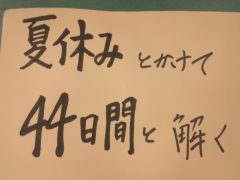 夏休みとかけて
44日間と解く